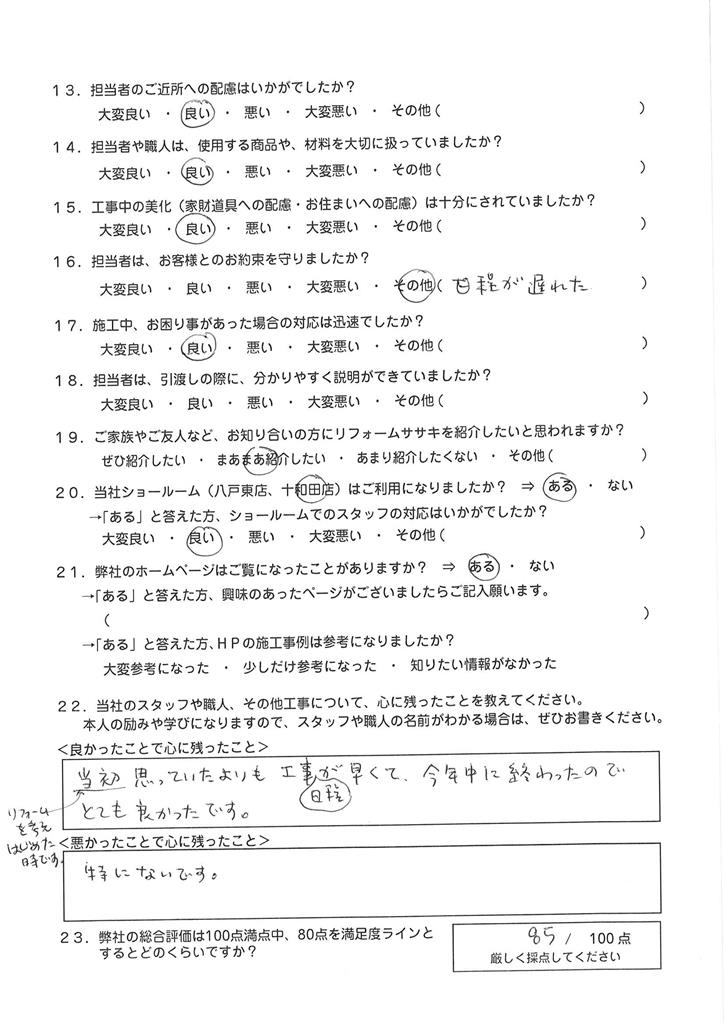 13．担当者のご近所への配慮はいかがでしたか？
大変良い ・ 良い ・ 悪い ・ 大変悪い ・ その他（ ）
14．担当者や職人は、使用する商品や、材料を大切に扱っていましたか？
大変良い ・ 良い ・ 悪い ・ 大変悪い ・ その他（ ）
15．工事中の美化（家財道具への配慮・お住まいへの配慮）は十分にされていましたか？
大変良い ・ 良い ・ 悪い ・ 大変悪い ・ その他（ ）
16．担当者は、お客様とのお約束を守りましたか？
大変良い ・ 良い ・ 悪い ・ 大変悪い ・ その他（ 日程が遅れた ）
17．施工中、お困り事があった場合の対応は迅速でしたか？
大変良い ・ 良い ・ 悪い ・ 大変悪い ・ その他（ ）
18．担当者は、引渡しの際に、分かりやすく説明ができていましたか？
大変良い ・ 良い ・ 悪い ・ 大変悪い ・ その他（ ）
19．ご家族やご友人など、お知り合いの方にリフォームササキを紹介したいと思われますか？
ぜひ紹介したい ・ まあまあ紹介したい ・ あまり紹介したくない ・ その他（ ）
20．当社ショールーム（八戸東店、十和田店）はご利用になりましたか？ ⇒ ある ・ ない
→「ある」と答えた方、ショールームでのスタッフの対応はいかがでしたか？
大変良い ・ 良い ・ 悪い ・ 大変悪い ・ その他（ ）
21．弊社のホームページはご覧になったことがありますか？ ⇒ ある ・ ない
→「ある」と答えた方、興味のあったページがございましたらご記入願います。
（ ）
→「ある」と答えた方、ＨＰの施工事例は参考になりましたか？
大変参考になった ・ 少しだけ参考になった ・ 知りたい情報がなかった
22．当社のスタッフや職人、その他工事について、心に残ったことを教えてください。
本人の励みや学びになりますので、スタッフや職人の名前がわかる場合は、ぜひお書きください。
＜良かったことで心に残ったこと＞
当初思っていたよりも工事が早くて、今年中に終わったので
日程
とても良かったです。
リフォーム
を考え
はじめた
時です。
＜悪かったことで心に残ったこと＞
特にないです。
23．弊社の総合評価は100点満点中、80点を満足度ラインと
するとどのくらいですか？
85 / 100点
厳しく採点してください